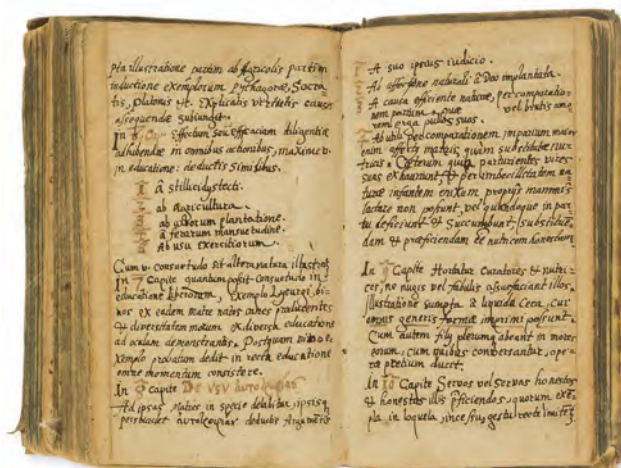 pta illustratione partim ab Agricolis partim
inductione exemplorum Pythagoræ, Socra-
tis, Platonis &c. Explicatis virtutis causis
assequendæ subiungit.
In Effectum seu efficaciam diligentiæ
adhibendæ in omnibus actionibus, maxime v.
in educatione: deductis similibus.
à stillicidijs tecti.
ab agricultura.
ab arborum plantatione.
à ferarum mansuetudine.
Ab usu exercitiorum.
Cum v. consuetudo sit altera natura illustrat
in 7 Capite quantum possit consuetudo in
educatione liberorum, exemplo Lycurgi, bi-
nos ex eadem matre natos canes producentis
& diversitatem morum ex diversa educatione
ad oculum demonstrantis. Postquam
xemplo probatum dedit in recta educatione
omne momentum consistere.
In 8 capite De usu
Ad ipsas Matres in specie delabitur, ipsisq
persuadet deductis Argumētis
A suo ipsius iudicio.
Ab affectione naturali à Deo implantata.
A causa efficiente naturæ, per comparatio-
nem partium, quæ vel brutis
rem erga pullos suos.
Ab utili per comparationem, imparum maior
enim affectus matris, quam substitutæ nu-
tricis. Cæterum quia parturientes vires
suas exhauriunt, & per imbecillitatem na-
turæ infantem enixum proprijs mammis
lactare non possunt, vel quandoque in par-
tu deficiunt & succumbunt, substituē-
dam & præficiendam ee nutricem honestam
In 9 Capite Hortatur Curatores & nutri-
ces, no nugis vel fabulis assuefaciant illos,
Illustratione sumpta à liquida Cera, cui
omnis generis formæ imprimi possunt.
Cum autem filij plerumq abeant in mores
eorum, cum quibus conversantur, ope-
ræ pretium ducit.
In 10 Capite Servos vel servas honestos
& honestas illis pficiendos, quorum exē-
pla in loquela, incessu, gestu recte imitēt